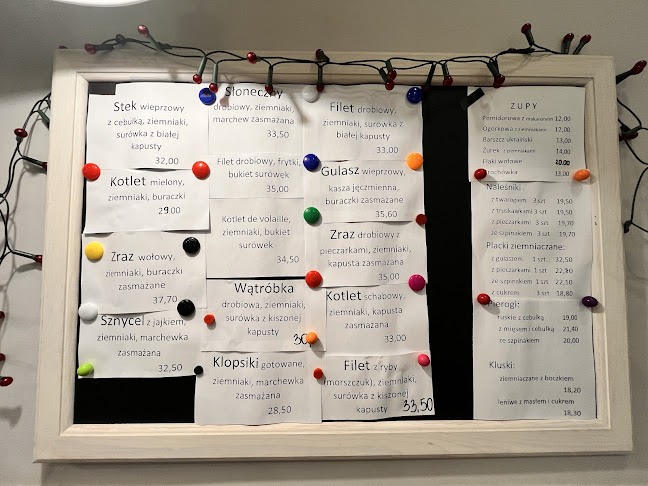 Stek wieprzowy
z cebulką, ziemniaki,
surówka z białej
kapusty
32,00
Kotlet mielony,
ziemniaki, buraczki
29,00
Zraz wołowy,
ziemniaki, buraczki
zasmażane
37,70
Sznycel z jajkiem,
ziemniaki, marchewka
zasmażana
32,50
Słoneczny
drobiowy, ziemniaki,
marchew zasmażana
33,50
Filet drobiowy, frytki,
bukiet surówek
35,00
Kotlet de volaille,
ziemniaki, bukiet
surówek
34,50
Wątróbka
drobiowa, ziemniaki,
surówka z kiszonej
kapusty
Klopsiki gotowane,
ziemniaki, marchewka
zasmażana
28,50
Filet drobiowy,
ziemniaki, surówka z
białej kapusty
33,00
Gulasz wieprzowy,
kasza jęczmienna,
buraczki zasmażane
35,60
Zraz drobiowy z
pieczarkami, ziemniaki,
kapusta zasmażana
35,00
Kotlet schabowy,
ziemniaki, kapusta
zasmażana
33,00
Filet z ryby
(morszczuk), ziemniaki,
surówka z kiszonej
kapusty 33,50
ZUPY
Pomidorowa z makaronem 12,00
Ogórkowa z ziemniakami 12,00
Barszcz ukraiński 13,00
Żurek z ziemniakami 14,00
Flaki wołowe
Grochówka 13,00
Naleśniki:
z twarogiem 3 szt 19,50
z truskawkami 3 szt 19,50
z pieczarkami 3 szt 19,70
ze szpinakiem 3 szt 19,70
Placki ziemniaczane:
z gulaszem 1 szt 32,50
z pieczarkami 1 szt 22,90
ze szpinakiem 1 szt 22,10
z cukrem 3 szt 18,80
Pierogi:
ruskie z cebulką 19,00
z mięsem i cebulką 21,40
ze szpinakiem 20,00
Kluski:
ziemniaczane z boczkiem
18,20
leniwe z masłem i cukrem
18,30